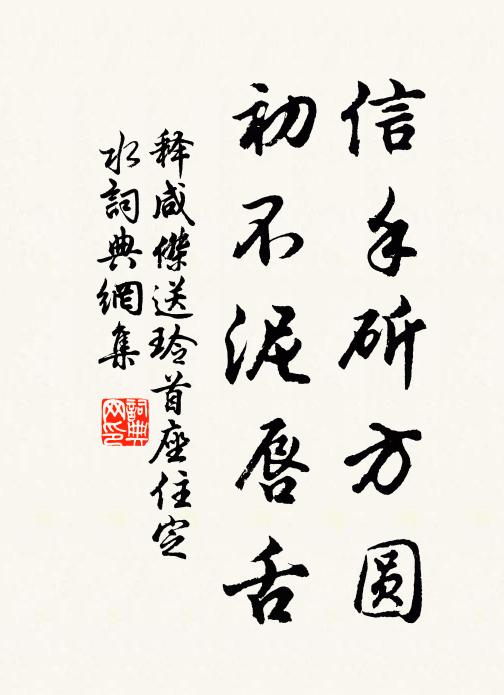 信手斫方圆
初不泥唇舌
释咸傑送玲首座住定
水詞典網集
詞典网印